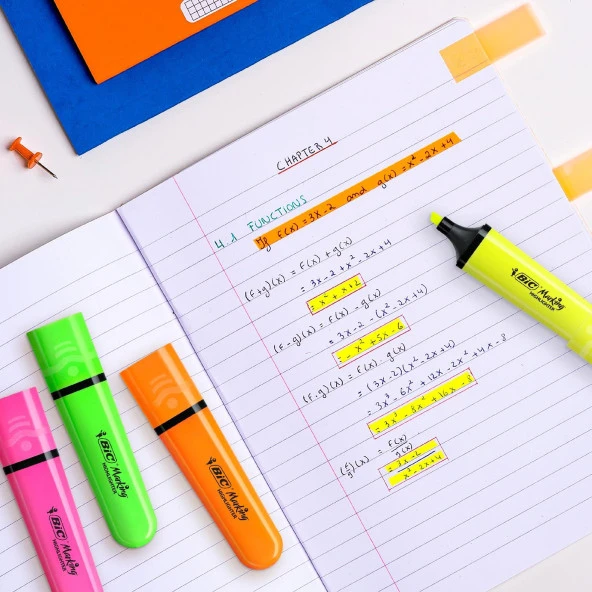 CHAPTER 4
4.1 FUNCTIONS
If F(x) = 3x-2 and g(x) = x² - 2x + 4
(F+g)(x) = F(x) + g(x)
= 3x - 2 + x² - 2x + 4
= x² + x + 2
(F-g)(x) = F(x) - g(x)
= 3x - 2 - (x² - 2x + 4)
= -x² + 5x - 6
(F.g)(x) = F(x) . g(x)
= (3x-2)(x² - 2x + 4)
= 3x³ - 6x² + 12x - 2x² + 4x - 8
= 3x³ - 8x² + 16x - 8
(F/g)(x) = F(x)/g(x)
= 3x-2
x² - 2x + 4
BiC Marking
HIGHLIGHTER
BiC Marking
HIGHLIGHTER
BiC Marking
HIGHLIGHTER
BiC Marking
HIGHLIGHTER